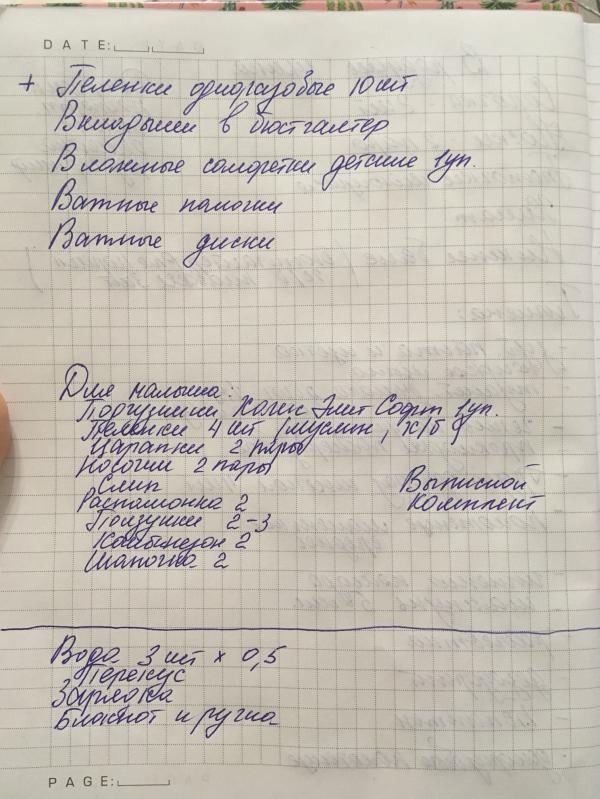 DATE:
+ Пеленки одноразовые 10 шт
Вкладыши в бюстгалтер
Влажные салфетки детские 1уп.
Ватные палочки
Ватные диски
Для малыша:
Подгузники Хагис Элит Софт 1уп.
Пеленки 4 шт (муслин, х/б)
Царапки 2 пары
Носочки 2 пары
Слип
Выписной
Распашонка 2
Комплект
Ползунки 2-3
Комбинезон 2
Шапочка 2
Вода 3 шт × 0,5
Перекус
Зарядка
Блокнот и ручка
PAGE: